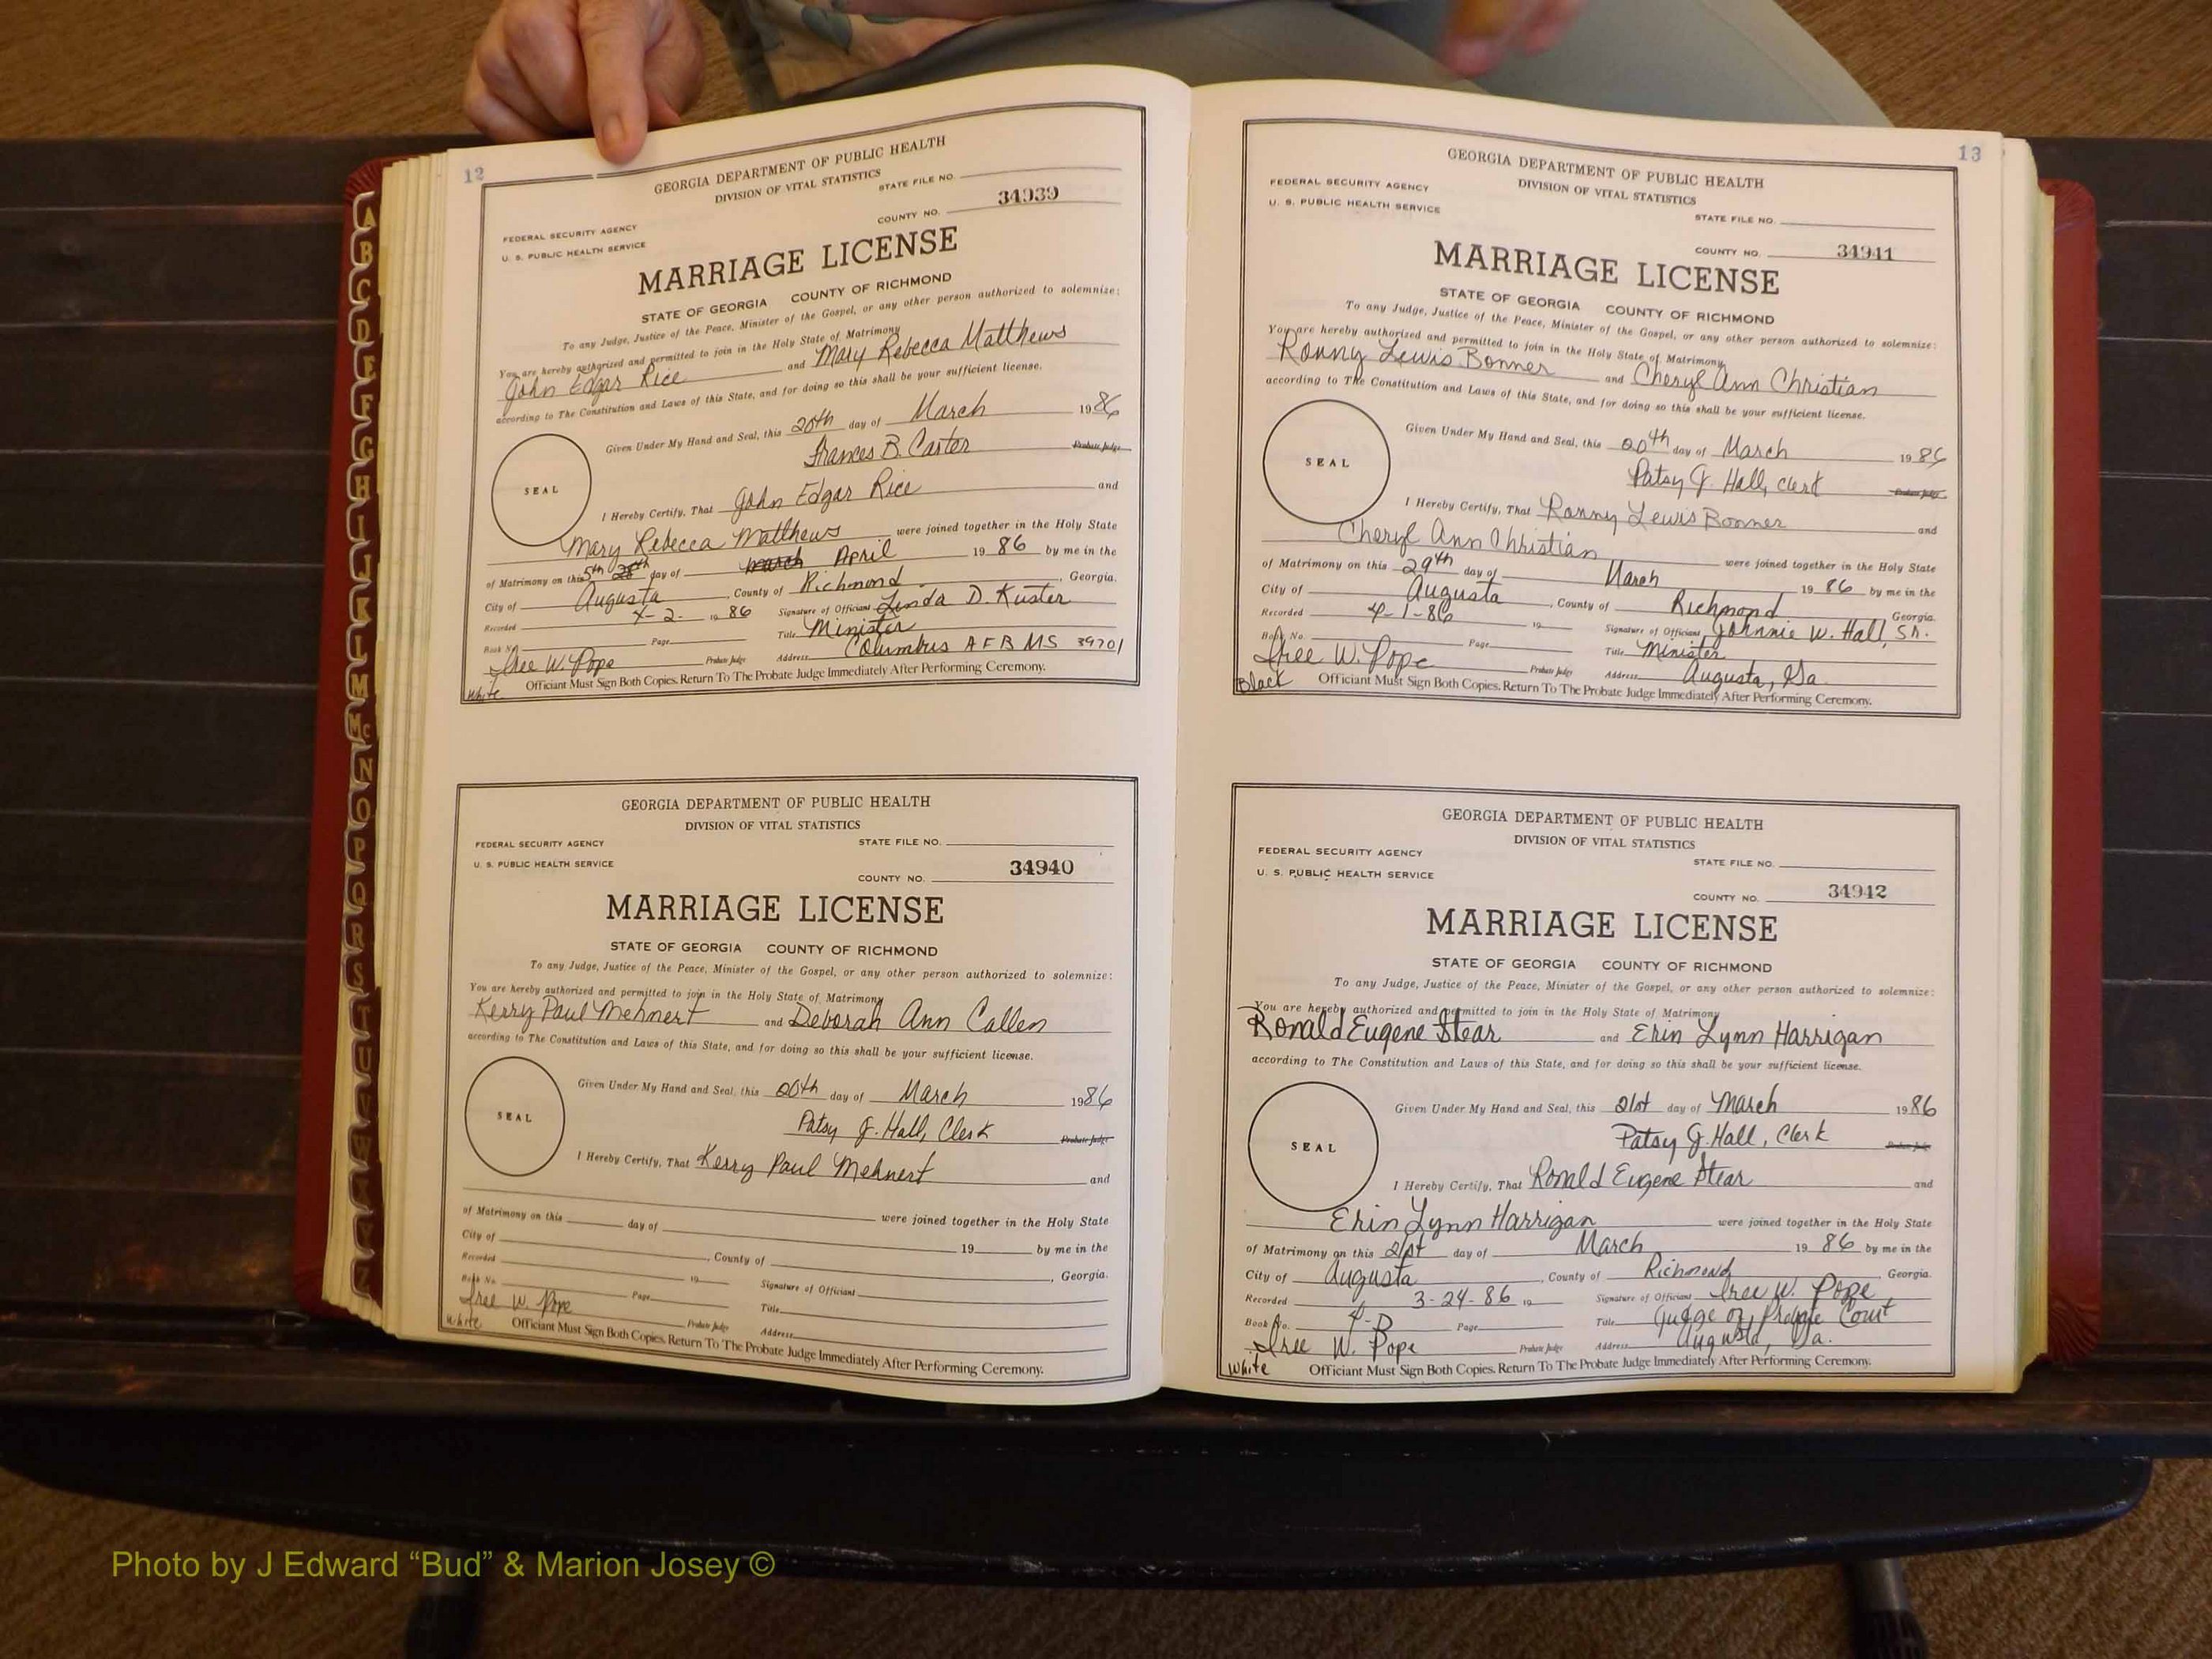 12
GEORGIA DEPARTMENT OF PUBLIC HEALTH
DIVISION OF VITAL STATISTICS
STATE FILE NO.
FEDERAL SECURITY AGENCY
U. S. PUBLIC HEALTH SERVICE
COUNTY NO. 34939
MARRIAGE LICENSE
STATE OF GEORGIA COUNTY OF RICHMOND
To any Judge, Justice of the Peace, Minister of the Gospel, or any other person authorized to solemnize:
You are hereby authorized and permitted to join in the Holy State of Matrimony
John Edgar Rice and Mary Rebecca Matthews
according to The Constitution and Laws of this State, and for doing so this shall be your sufficient license.
Given Under My Hand and Seal, this 20th day of March 1986
Frances B. Carter Probate Judge
SEAL
I Hereby Certify, That John Edgar Rice and
Mary Rebecca Matthews were joined together in the Holy State
of Matrimony on this 5th 28th day of March April 19 86 by me in the
City of Augusta, County of Richmond, Georgia.
Recorded 4-2- 19 86 Signature of Officiant Linda D. Kuster
Book No. Page Title Minister
Iree W. Pope Probate Judge Address Columbus AFB MS 39701
White Officiant Must Sign Both Copies. Return To The Probate Judge Immediately After Performing Ceremony.
GEORGIA DEPARTMENT OF PUBLIC HEALTH
DIVISION OF VITAL STATISTICS
FEDERAL SECURITY AGENCY STATE FILE NO.
U. S. PUBLIC HEALTH SERVICE
COUNTY NO. 34940
MARRIAGE LICENSE
STATE OF GEORGIA COUNTY OF RICHMOND
To any Judge, Justice of the Peace, Minister of the Gospel, or any other person authorized to solemnize:
You are hereby authorized and permitted to join in the Holy State of Matrimony
Kerry Paul Mehnert and Deborah Ann Callen
according to The Constitution and Laws of this State, and for doing so this shall be your sufficient license.
Given Under My Hand and Seal, this 20th day of March 1986
Patsy J. Hall, Clerk Probate Judge
SEAL
I Hereby Certify, That Kerry Paul Mehnert and
were joined together in the Holy State
of Matrimony on this day of 19 by me in the
City of , County of , Georgia.
Recorded 19 Signature of Officiant
Book No. Page Title
Iree W. Pope Probate Judge Address
White Officiant Must Sign Both Copies. Return To The Probate Judge Immediately After Performing Ceremony.
13
GEORGIA DEPARTMENT OF PUBLIC HEALTH
FEDERAL SECURITY AGENCY DIVISION OF VITAL STATISTICS
U. S. PUBLIC HEALTH SERVICE
STATE FILE NO.
COUNTY NO. 34941
MARRIAGE LICENSE
STATE OF GEORGIA COUNTY OF RICHMOND
To any Judge, Justice of the Peace, Minister of the Gospel, or any other person authorized to solemnize:
You are hereby authorized and permitted to join in the Holy State of Matrimony
Ronny Lewis Bonner and Cheryl Ann Christian
according to The Constitution and Laws of this State, and for doing so this shall be your sufficient license.
Given Under My Hand and Seal, this 20th day of March 1986
Patsy J. Hall, clerk Probate Judge
SEAL
I Hereby Certify, That Ronny Lewis Bonner and
Cheryl Ann Christian were joined together in the Holy State
of Matrimony on this 29th day of March 19 86 by me in the
City of Augusta, County of Richmond Georgia.
Recorded 4-1-86 19 Signature of Officiant Johnnie W. Hall, Sr.
Book No. Page Title Minister
Iree W. Pope Probate Judge Address Augusta, Ga.
Black Officiant Must Sign Both Copies. Return To The Probate Judge Immediately After Performing Ceremony.
GEORGIA DEPARTMENT OF PUBLIC HEALTH
DIVISION OF VITAL STATISTICS
FEDERAL SECURITY AGENCY STATE FILE NO.
U. S. PUBLIC HEALTH SERVICE
COUNTY NO. 34942
MARRIAGE LICENSE
STATE OF GEORGIA COUNTY OF RICHMOND
To any Judge, Justice of the Peace, Minister of the Gospel, or any other person authorized to solemnize:
You are hereby authorized and permitted to join in the Holy State of Matrimony
Ronald Eugene Stear and Erin Lynn Harrigan
according to The Constitution and Laws of this State, and for doing so this shall be your sufficient license.
Given Under My Hand and Seal, this 21st day of March 1986
Patsy J. Hall, Clerk Probate Judge
SEAL
I Hereby Certify, That Ronald Eugene Stear and
Erin Lynn Harrigan were joined together in the Holy State
of Matrimony on this 21st day of March 19 86 by me in the
City of Augusta, County of Richmond, Georgia.
Recorded 3-24-86 19 Signature of Officiant Iree W. Pope
Book No. 4-D Page Title Judge of Probate Court
Iree W. Pope Probate Judge Address Augusta, Ga.
White Officiant Must Sign Both Copies. Return To The Probate Judge Immediately After Performing Ceremony.
A
B
C
D
E
F
G
H
I
J
K
L
M
Mc
N
O
P
Q
R
S
T
U
V
W
Photo by J Edward “Bud” & Marion Josey ©